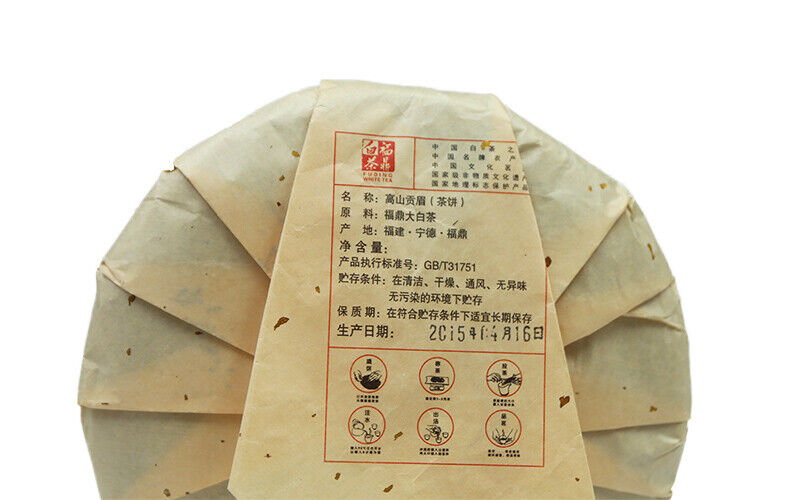 福鼎
白茶
FUDING
WHITE TEA
中国白茶之
中国名牌农产
中国文化名
国家级非物质文化遗产
国家地理标志保护产品
名 称：高山贡眉（茶饼）
原 料：福鼎大白茶
产 地：福建·宁德·福鼎
净含量：
产品执行标准号：GB/T31751
贮存条件：在清洁、干燥、通风、无异味
无污染的环境下贮存
保 质 期：在符合贮存条件下适宜长期保存
生产日期：2015年04月16日
投茶
注水
出汤